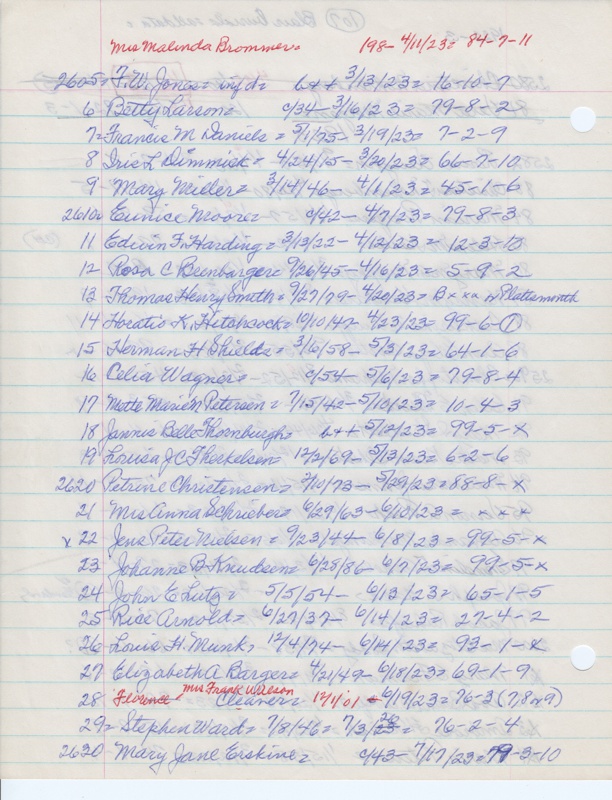 Mrs Malinda Brommer = 198- 4/11/23 = 84-7-11
2605 = F.W. Jones = inf d = b++ 3/13/23 = 16-10-7
6 Betty Larson = c/34 - 3/16/23 = 79-8-2
7 = Francis M Daniels = 5/1/75 - 3/19/23 = 7-2-9
8 Iris L Dimmick = 4/24/15 - 3/20/23 = 66-7-10
9 Mary Miller = 3/14/46 - 4/1/23 = 45-1-6
2610 = Eunise Moore = c/42 - 4/7/23 = 79-8-3
11 Edwin F. Harding = 3/13/22 - 4/12/23 = 12-3-10
12 Rosa C Beinbarger = 9/26/45 - 4/16/23 = 5-9-2
13 Thomas Henry Smith = 9/27/79 - 4/20/23 = B x xx in Plattsmonth
14 Horatio K. Hitchcock = 10/10/47 4/23/23 = 99-6-1
15 Herman H Shields = 3/16/58 - 5/3/23 = 64-1-6
16 Celia Wagner = c/54 - 5/6/23 = 79-8-4
17 Mette Marie M Peterson = 7/15/42 - 5/10/23 = 10-4-3
18 Jannis Belle Thornburgh = b++ 5/12/23 = 99-5-x
19 Louisa J C Therkelsen = 12/2/69 - 5/13/23 = 6-2-6
2620 Petrine Christensen = 2/10/73 - 5/29/23 = 88-8-x
21 Mrs Anna Schrieber = 6/29/63 - 6/10/23 = x x x
x 22 Jens Peter Nielsen = 9/23/44 - 6/8/23 = 99-5-x
23 Johanne B Knudsen = 6/28/86 - 6/7/23 = 99-5-x
24 John E Lutz = 5/5/54 - 6/13/23 = 65-1-5
25 Rice Arnold = 6/27/37 - 6/14/23 = 27-4-2
26 Louis H. Munk, 12/4/74 - 6/14/23 = 93-1-x
27 Elizabeth A Barger = 4/21/49 - 6/18/23 = 69-1-9
28 Florence Mrs Frank Wilson Cleaner = 12/11/01 - 6/19/23 = 76-3 (7,8 or 9)
29 = Stephen Ward = 7/8/46 = 7/3/23 = 76-2-4
2630 Mary Jane Erskine = c/43 - 7/17/23 = 79-3-10